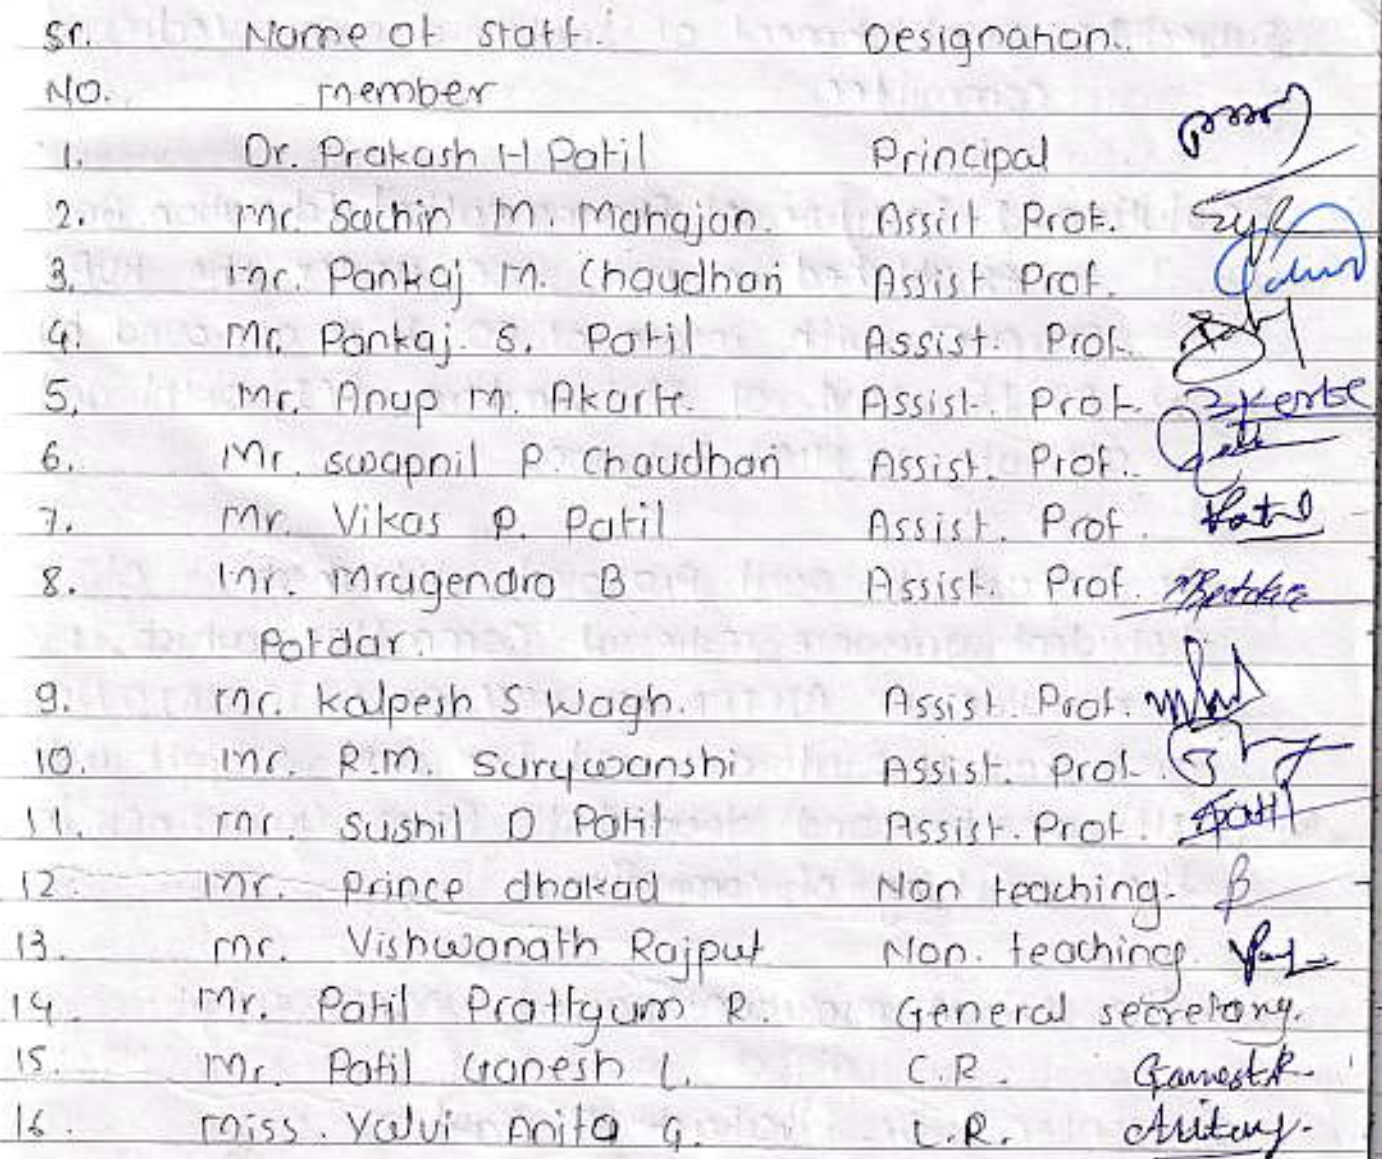 Sr. Name of staff. Designation.
No. member
1. Dr. Prakash H Patil Principal
2. Mr. Sachin M. Mahajan. Assist Prof.
3. Mr. Pankaj M. Chaudhari Assist Prof.
4. Mr. Pankaj. S. Patil Assist. Prof.
5. Mr. Anup M. Akarte. Assist. Prof.
6. Mr. swapnil P. Chaudhari Assist. Prof.
7. Mr. Vikas P. Patil Assist. Prof. Patil
8. Mr. Mragendra B Assist. Prof. MBpotdar
Potdar.
9. Mr. Kalpesh S Wagh. Assist. Prof.
10. Mr. R.M. Surywanshi Assist. Prof.
11. Mr. Sushil D Patil Assist. Prof. SPatil
12. Mr. Prince dhakad Non teaching.
13. Mr. Vishwanath Rajput Non. teaching.
14. Mr. Patil Pratigum R. General secretary.
15. Mr. Patil Ganesh L. C.R. Ganesh
16. Miss. Valvi Anita G. L.R. Anita